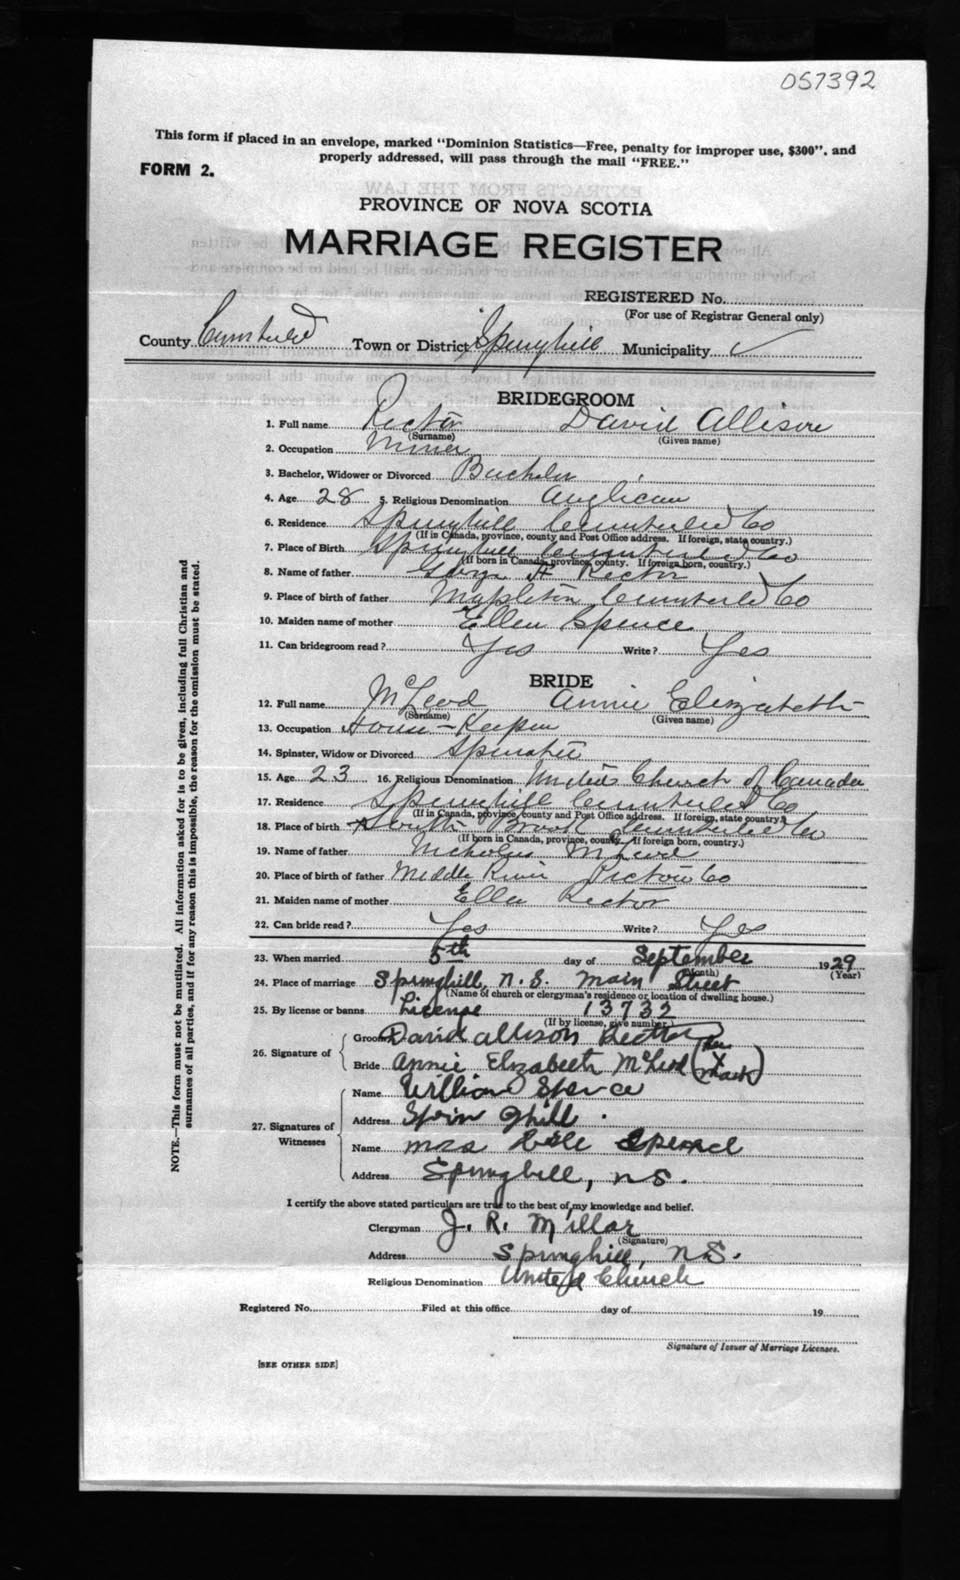 057392
This form if placed in an envelope, marked "Dominion Statistics—Free, penalty for improper use, $300", and
properly addressed, will pass through the mail "FREE."
FORM 2.
PROVINCE OF NOVA SCOTIA
MARRIAGE REGISTER
REGISTERED No.
(For use of Registrar General only)
County Cumberld Town or District Springhill Municipality ✓
BRIDEGROOM
1. Full name Rector David Allison
(Surname) (Given name)
2. Occupation Miner
3. Bachelor, Widower or Divorced Bachelor
4. Age 28 5. Religious Denomination Anglican
6. Residence Springhill Cumberled Co
(If in Canada, province, county and Post Office address. If foreign, state country.)
7. Place of Birth Springhill Cumberled Co
(If born in Canada, province, county. If foreign born, country.)
8. Name of father George A Rector
9. Place of birth of father Mapleton Cumberled Co
10. Maiden name of mother Ellen Spence
11. Can bridegroom read? Yes Write? Yes
BRIDE
12. Full name McLeod Annie Elizabeth
(Surname) (Given name)
13. Occupation House-Keeper
14. Spinster, Widow or Divorced Spinster
15. Age 23 16. Religious Denomination United Church of Canada
17. Residence Springhill Cumberled Co
(If in Canada, province, county and Post Office address. If foreign, state country.)
18. Place of birth South Brook Cumberled Co
(If born in Canada, province, county. If foreign born, country.)
19. Name of father Nicholas McLeod
20. Place of birth of father Middle River Pictou Co
21. Maiden name of mother Ella Rector
22. Can bride read? Yes Write? Yes
23. When married 5th day of September 1929
(Month) (Year)
24. Place of marriage Springhill, N.S. Main Street
(Name of church or clergyman's residence or location of dwelling house.)
25. By license or banns License 13732
(If by license, give number.)
26. Signature of
Groom David Allison Rector
Bride Annie Elizabeth McLeod (her X mark)
27. Signatures of Witnesses
Name William Spence
Address Springhill.
Name Mrs Spence
Address Springhill, N.S.
I certify the above stated particulars are true to the best of my knowledge and belief.
Clergyman J. R. Millar
(Signature)
Address Springhill, N.S.
Religious Denomination United Church
Registered No. Filed at this office day of 19
Signature of Issuer of Marriage Licenses.
[SEE OTHER SIDE]
NOTE.—This form must not be mutilated. All information asked for is to be given, including full Christian and
surnames of all parties, and if for any reason this is impossible, the reason for the omission must be stated.